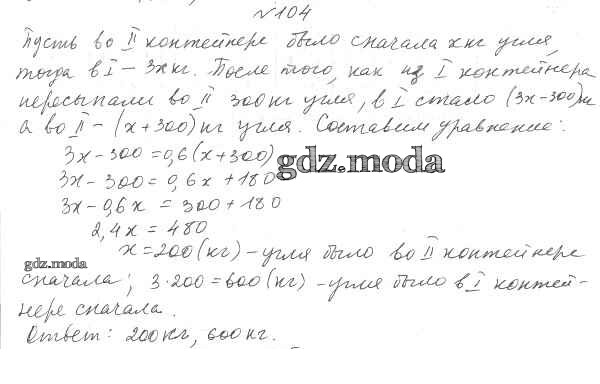 №104
Пусть во II контейнере было сначала х кг угля,
тогда в I – 3х кг. После того, как из I контейнера
пересыпали во II 300 кг угля, в I стало (3х-300) кг
а во II – (х+300) кг угля. Составим уравнение:
3х-300=0,6(х+300)
gdz.moda
3х-300=0,6х+180
3х-0,6х = 300+180
2,4х = 480
х=200(кг) – угля было во II контейнере
gdz.moda
сначала; 3·200=600(кг) – угля было в I контей-
нере сначала.
Ответ: 200кг, 600кг.